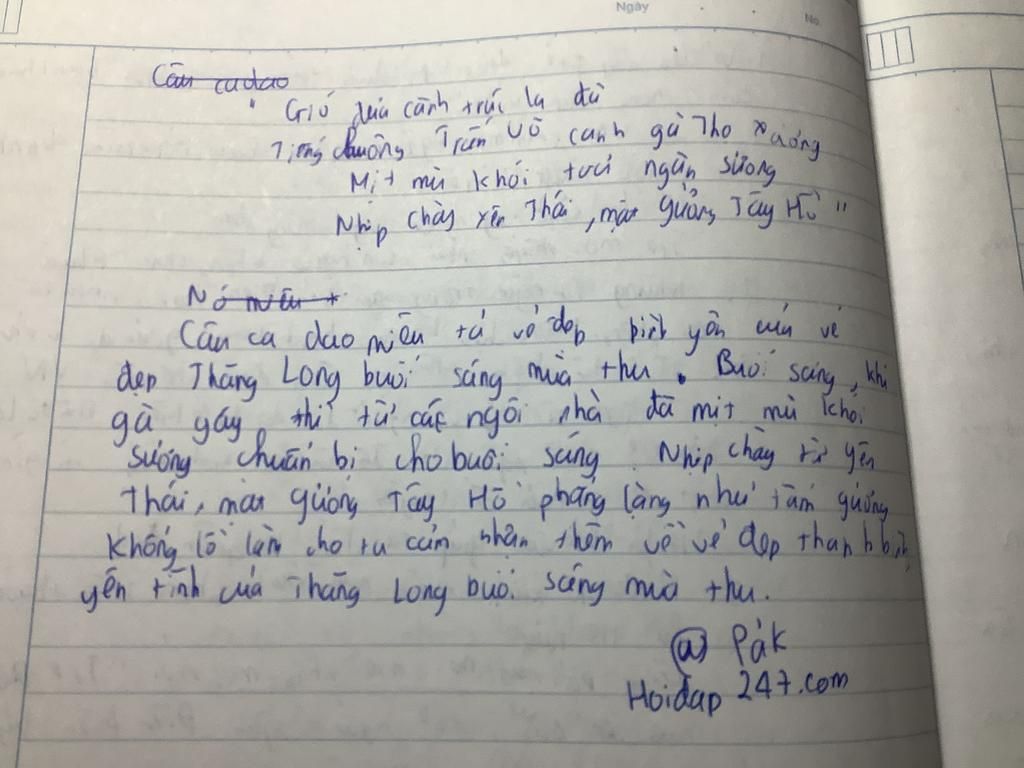 Ngày
No.
Câu ca dao
" Gió đưa cành trúc la đà
Tiếng chuông Trấn Võ canh gà Thọ Xương
Mịt mù khói tươi ngàn sương
Nhịp chày Yên Thái, mặt gương Tây Hồ "
Nó miêu t
Câu ca dao miêu tả vẻ đẹp bình yên của vẻ
đẹp Thăng Long buổi sáng mùa thu. Buổi sáng, khi
gà gáy thì từ các ngôi nhà đã mịt mù khói
sương chuẩn bị cho buổi sáng. Nhịp chày từ Yên
Thái, mặt gương Tây Hồ phẳng lặng như tấm gương
khổng lồ làm cho ta cảm nhận thêm về vẻ đẹp thanh bình,
yên tĩnh của Thăng Long buổi sáng mùa thu.
@ Pák
Hoidap 247.com